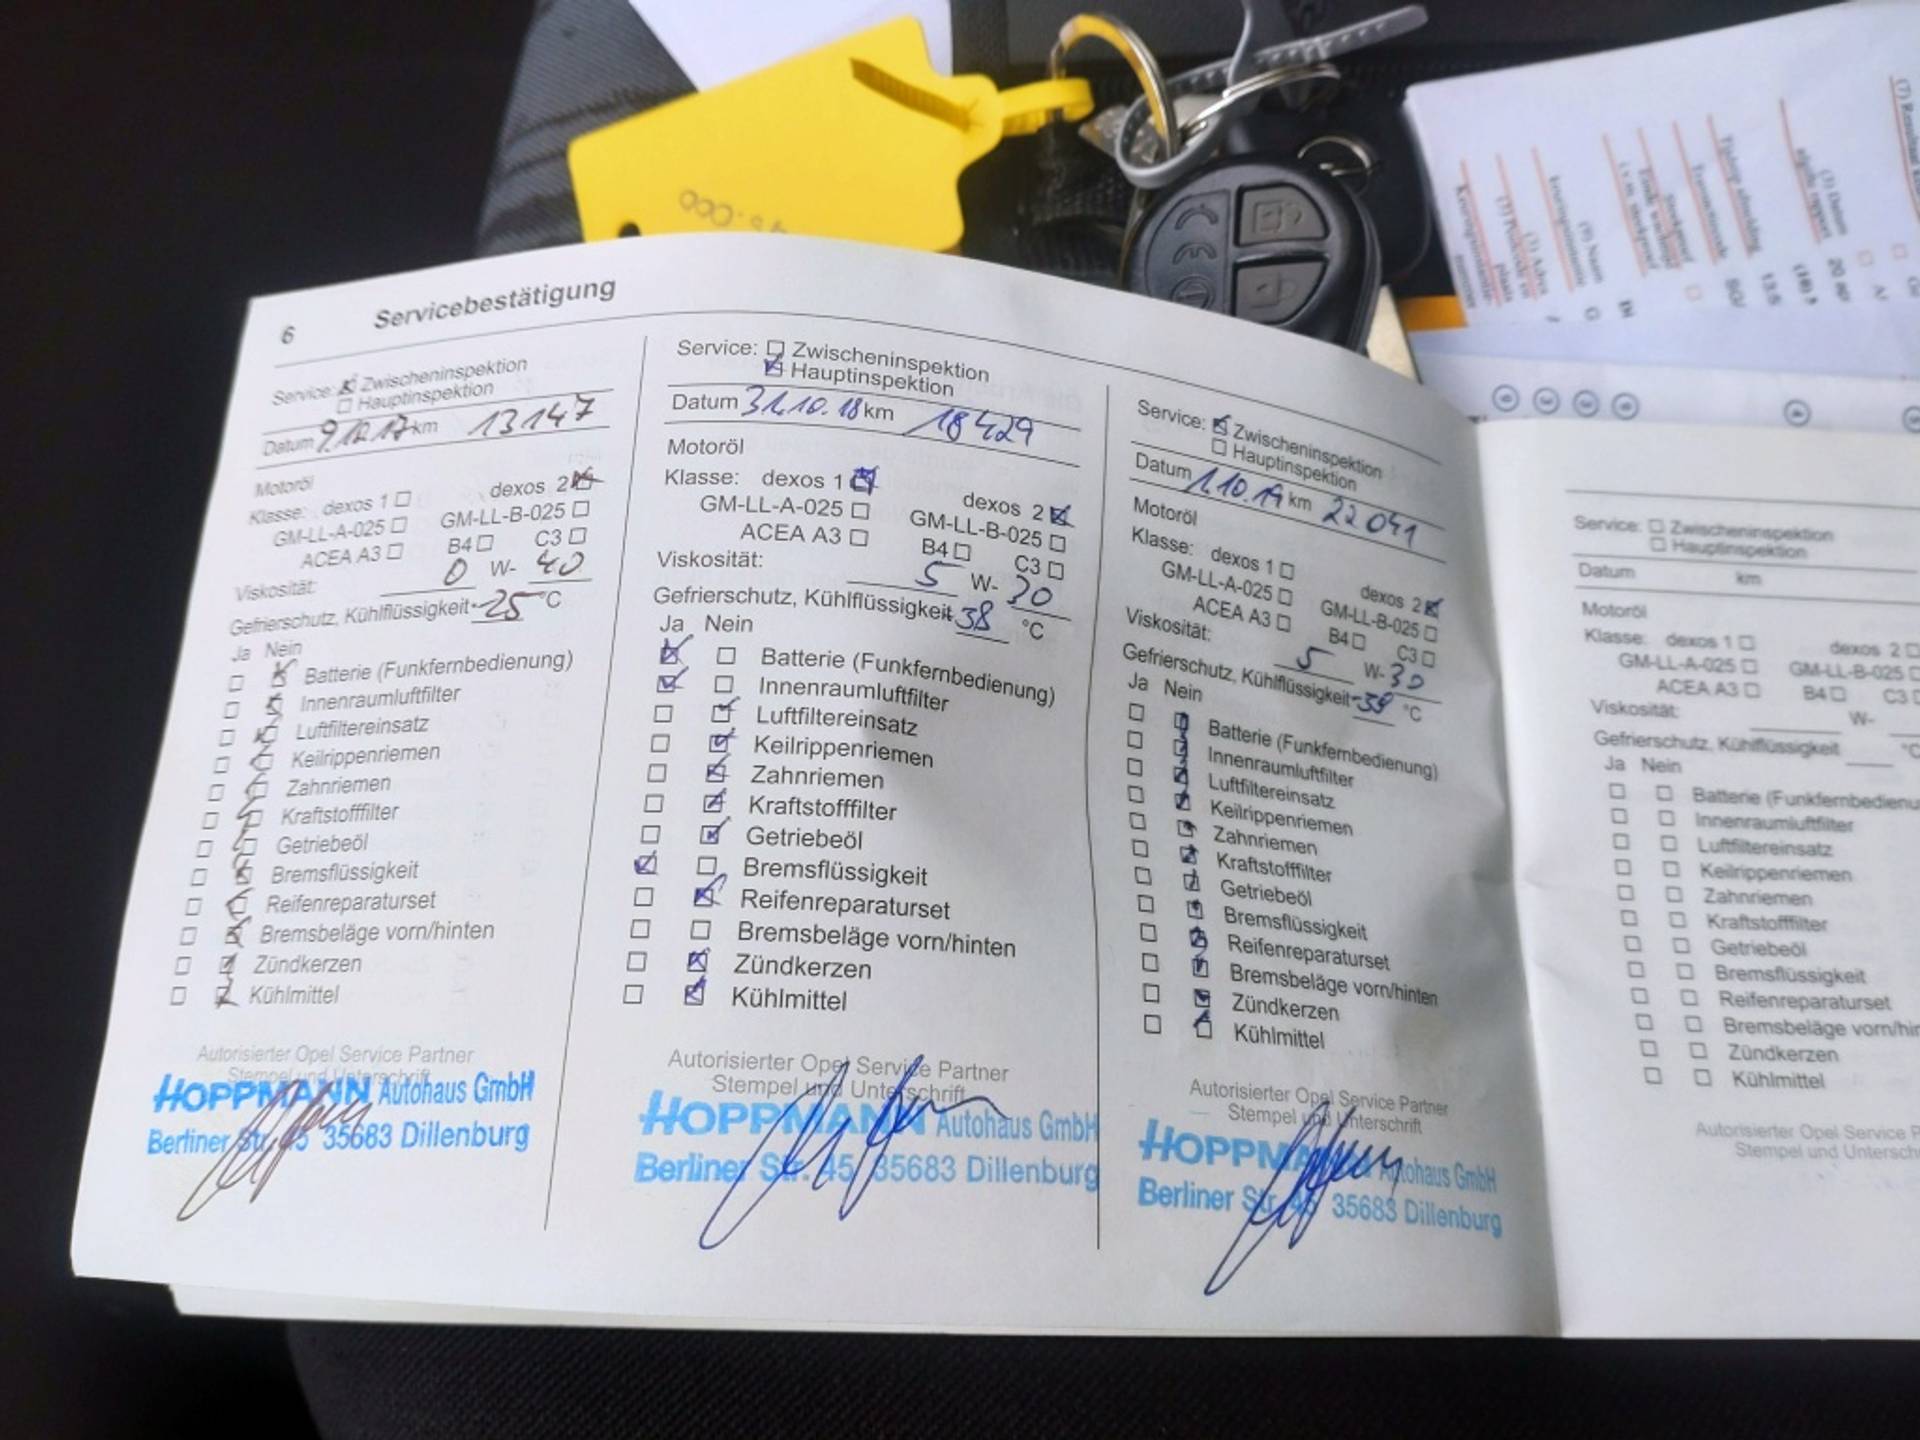 6 Servicebestätigung
Service: Zwischeninspektion
Hauptinspektion
Datum 9.10.17 km 13147
Motoröl
Klasse: dexos 1 dexos 2
GM-LL-A-025 GM-LL-B-025
ACEA A3 B4 C3
Viskosität: 0 W- 40
Gefrierschutz, Kühlflüssigkeit -25 °C
Ja Nein
Batterie (Funkfernbedienung)
Innenraumluftfilter
Luftfiltereinsatz
Keilrippenriemen
Zahnriemen
Kraftstofffilter
Getriebeöl
Bremsflüssigkeit
Reifenreparaturset
Bremsbeläge vorn/hinten
Zündkerzen
Kühlmittel
Autorisierter Opel Service Partner
Stempel und Unterschrift
HOPPMANN Autohaus GmbH
Berliner Str. 45 35683 Dillenburg
Service: Zwischeninspektion
Hauptinspektion
Datum 31.10.18 km 18429
Motoröl
Klasse: dexos 1 dexos 2
GM-LL-A-025 GM-LL-B-025
ACEA A3 B4 C3
Viskosität: 5 W- 30
Gefrierschutz, Kühlflüssigkeit -38 °C
Ja Nein
Batterie (Funkfernbedienung)
Innenraumluftfilter
Luftfiltereinsatz
Keilrippenriemen
Zahnriemen
Kraftstofffilter
Getriebeöl
Bremsflüssigkeit
Reifenreparaturset
Bremsbeläge vorn/hinten
Zündkerzen
Kühlmittel
Autorisierter Opel Service Partner
Stempel und Unterschrift
HOPPMANN Autohaus GmbH
Berliner Str. 45 35683 Dillenburg
Service: Zwischeninspektion
Hauptinspektion
Datum 1.10.19 km 22041
Motoröl
Klasse: dexos 1 dexos 2
GM-LL-A-025 GM-LL-B-025
ACEA A3 B4 C3
Viskosität: 5 W- 30
Gefrierschutz, Kühlflüssigkeit -38 °C
Ja Nein
Batterie (Funkfernbedienung)
Innenraumluftfilter
Luftfiltereinsatz
Keilrippenriemen
Zahnriemen
Kraftstofffilter
Getriebeöl
Bremsflüssigkeit
Reifenreparaturset
Bremsbeläge vorn/hinten
Zündkerzen
Kühlmittel
Autorisierter Opel Service Partner
Stempel und Unterschrift
HOPPMANN Autohaus GmbH
Berliner Str. 45 35683 Dillenburg
Service: Zwischeninspektion
Hauptinspektion
Datum km
Motoröl
Klasse: dexos 1 dexos 2
GM-LL-A-025 GM-LL-B-025
ACEA A3 B4 C3
Viskosität: W-
Gefrierschutz, Kühlflüssigkeit °C
Ja Nein
Batterie (Funkfernbedienu
Innenraumluftfilter
Luftfiltereinsatz
Keilrippenriemen
Zahnriemen
Kraftstofffilter
Getriebeöl
Bremsflüssigkeit
Reifenreparaturset
Bremsbeläge vorn/hin
Zündkerzen
Kühlmittel
Autorisierter Opel Service P
Stempel und Untersch